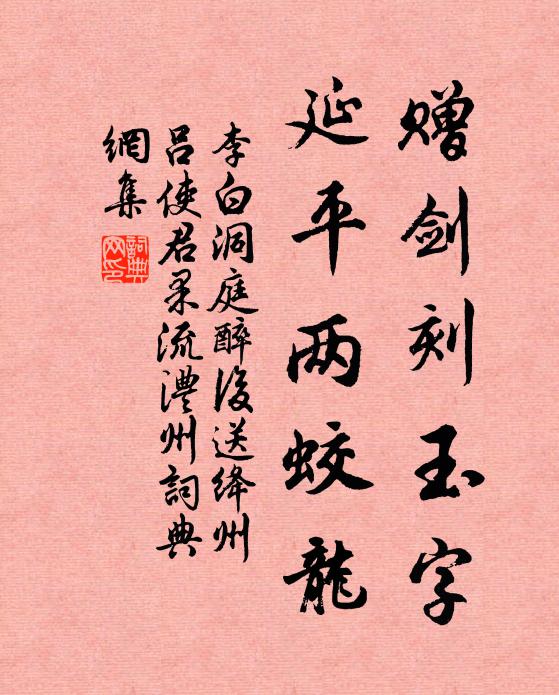 赠剑刻玉字
延平两蛟龍
李白洞庭醉後送绛州
吕使君杲流澧州詞典
網集
詞典网印